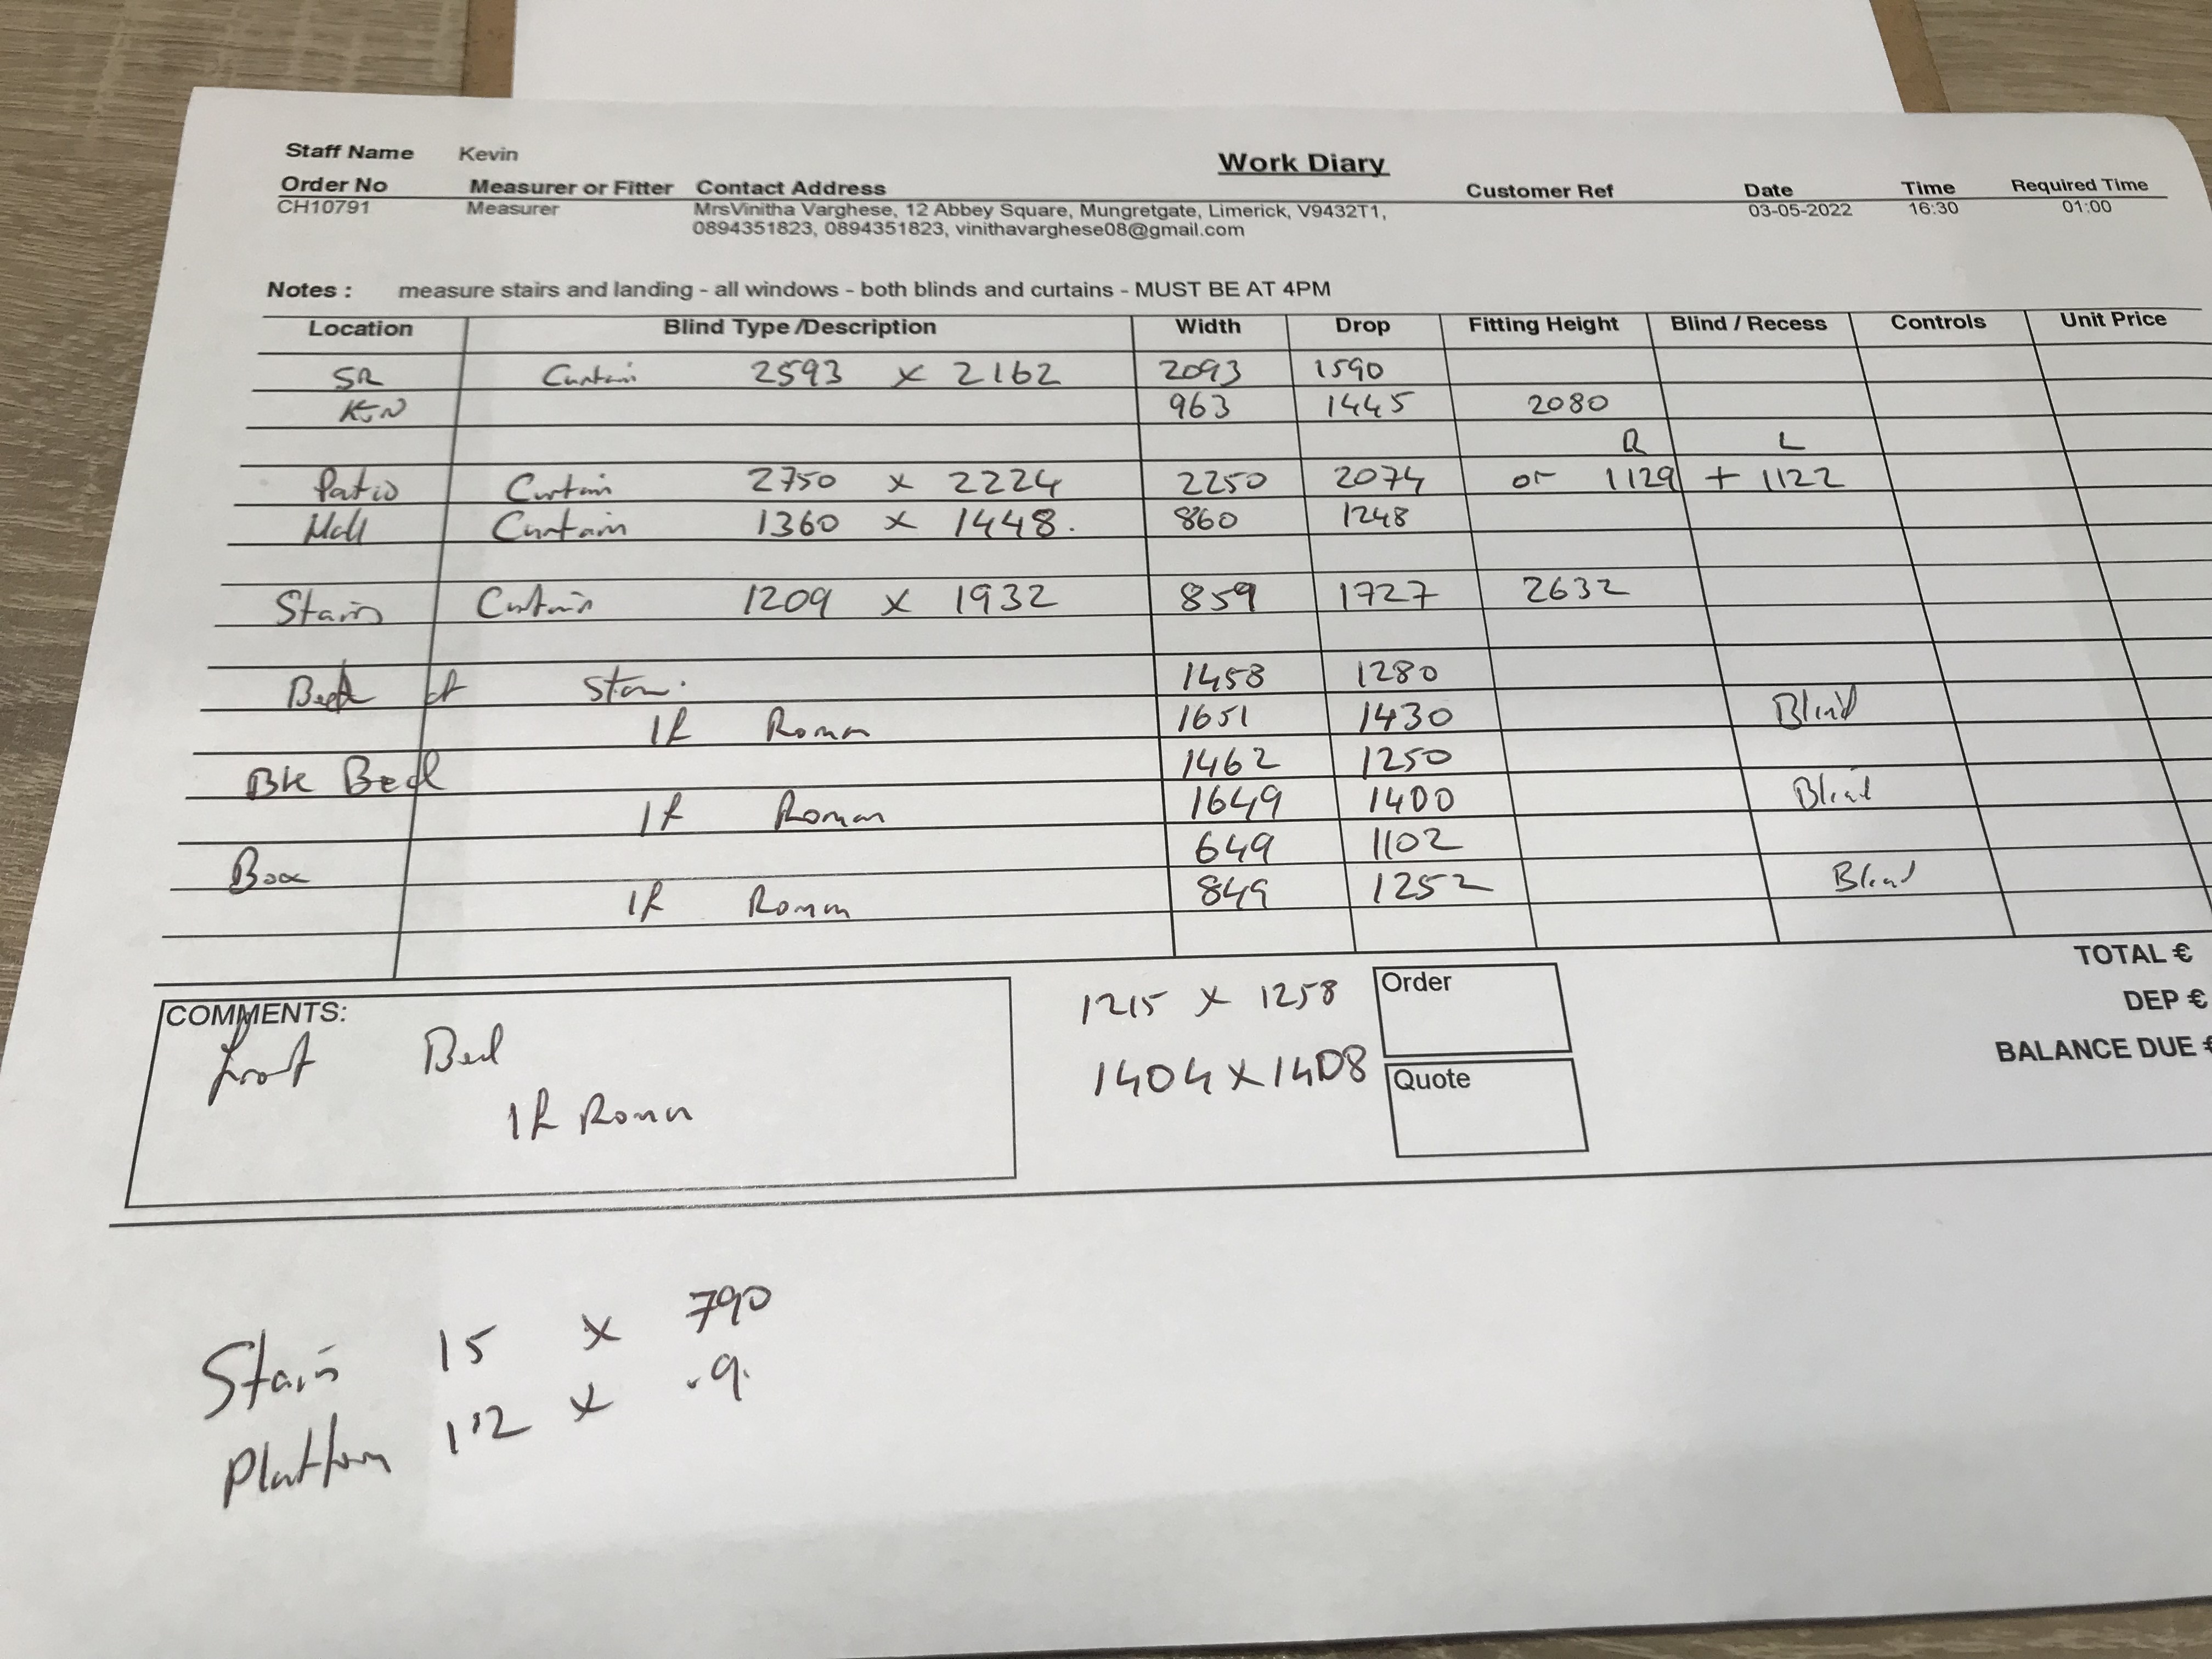 Staff Name Kevin
Work Diary
Order No Measurer or Fitter Contact Address Customer Ref Date Time Required Time
CH10791 Measurer MrsVinitha Varghese, 12 Abbey Square, Mungretgate, Limerick, V9432T1, 03-05-2022 16:30 01:00
0894351823, 0894351823, vinithavarghese08@gmail.com
Notes : measure stairs and landing - all windows - both blinds and curtains - MUST BE AT 4PM
Location Blind Type /Description Width Drop Fitting Height Blind / Recess Controls Unit Price
SR Curtain 2593 x 2162 2093 1590
963 1445 2080
R L
Patio Curtain 2750 x 2224 2250 2074 or 1129 + 1122
Hall Curtain 1360 x 1448. 860 1248
Stairs Curtain 1209 x 1932 859 1727 2632
1458 1280
at
Roman 1651 1430 Blind
Bk Bed 1462 1250
Roman 1649 1400 Blind
Box 649 1102
Roman 849 1252 Blind
TOTAL €
COMMENTS: 1215 x 1258 Order
DEP €
Front Bed
BALANCE DUE €
1404 x 1408 Quote
Roman
Stairs 15 x 790
Platform 1.2 x .9.